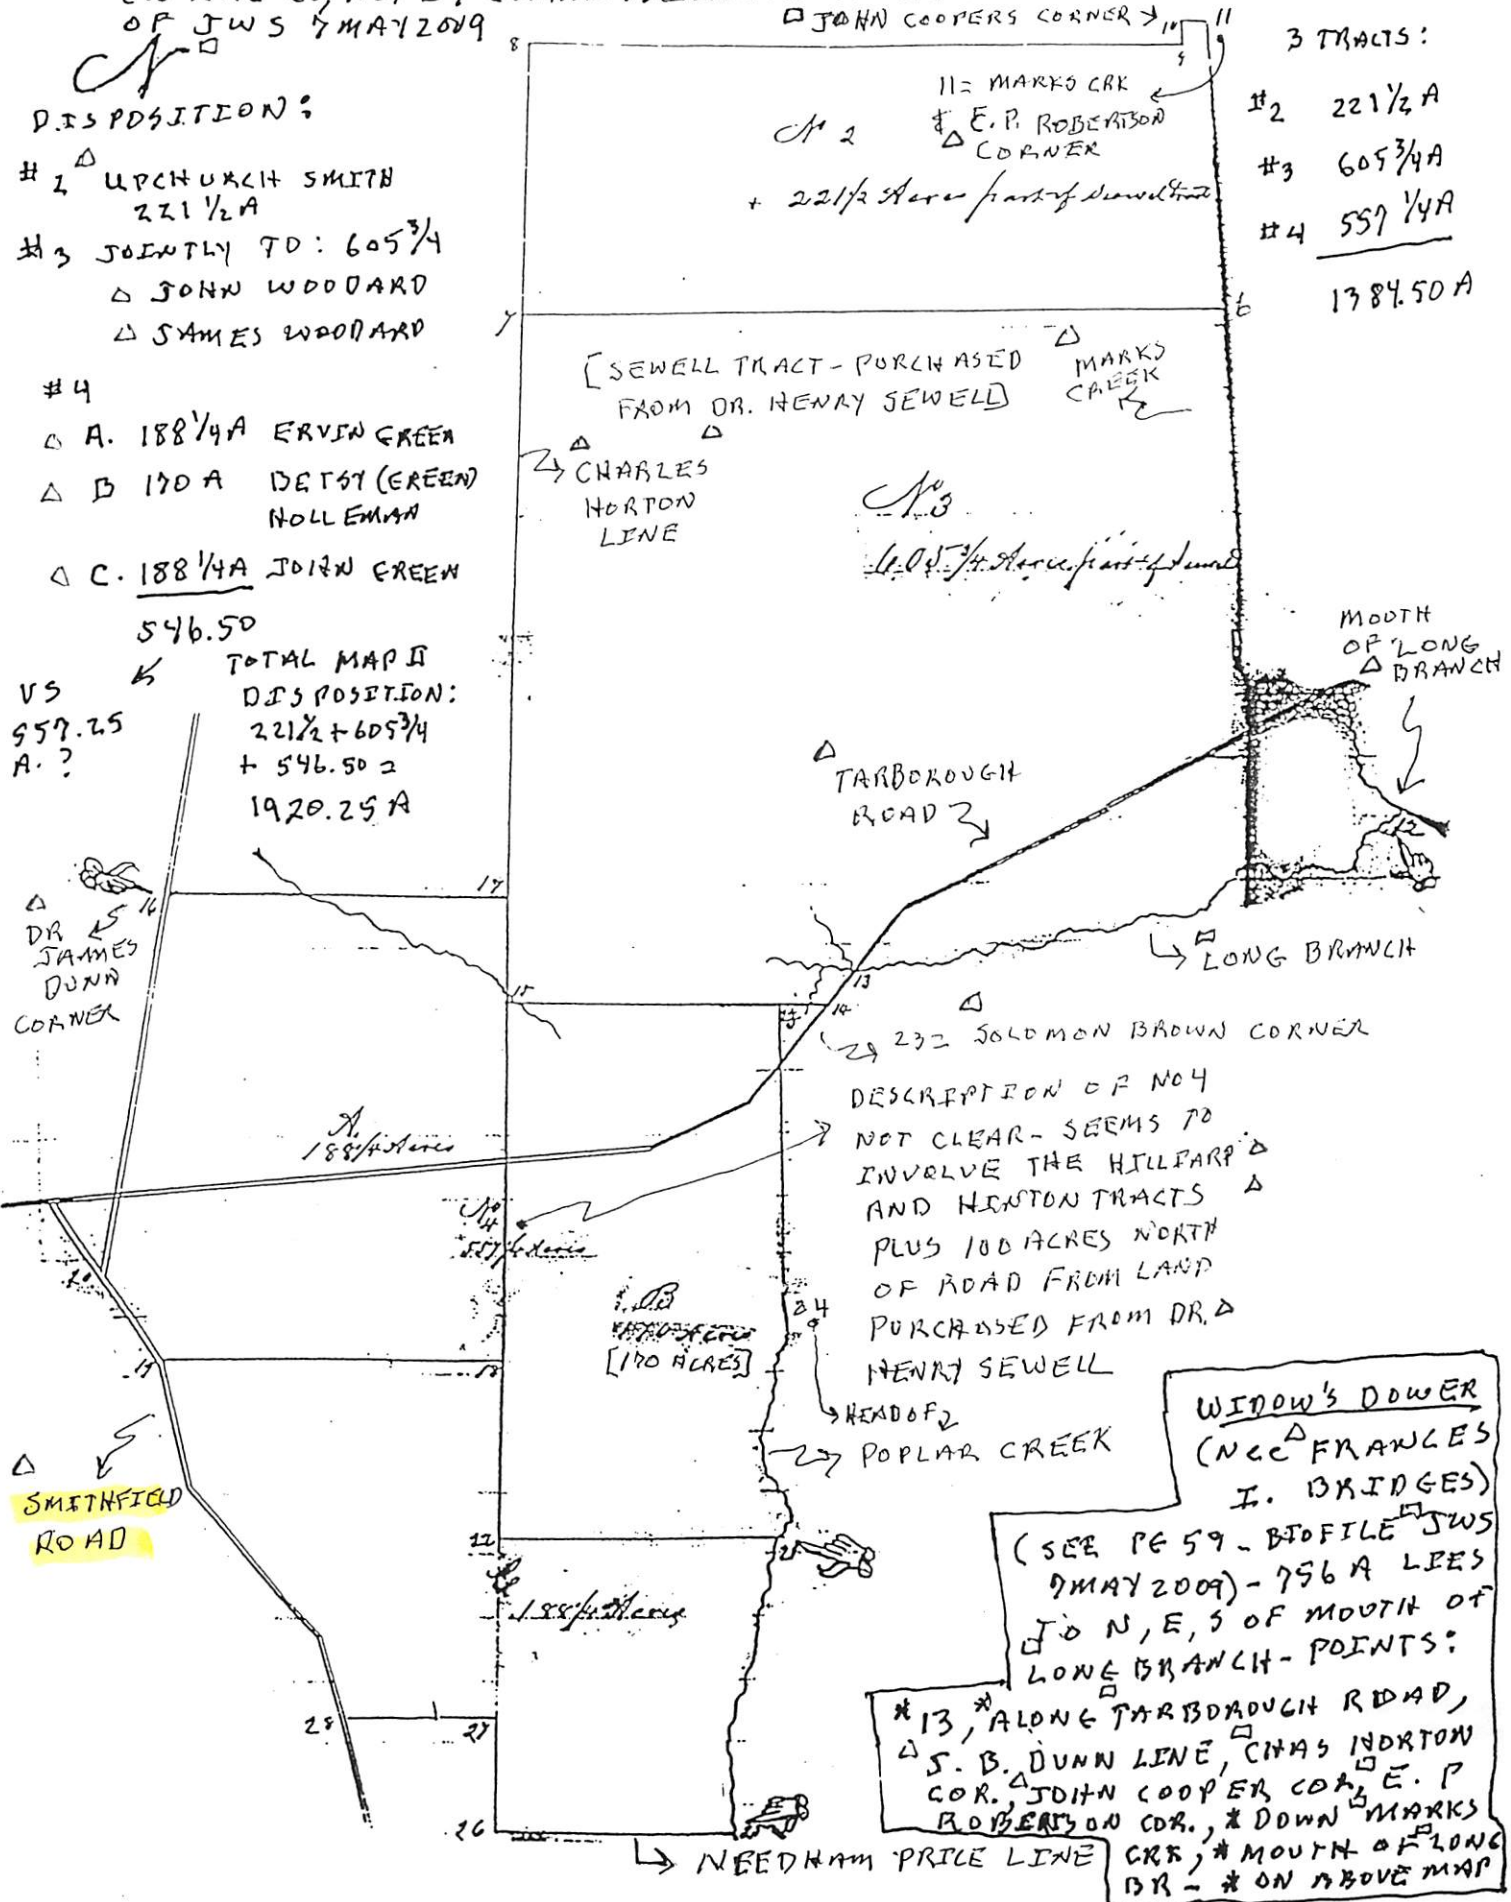 OF JWS 7 MAY 2009
N
DISPOSITION:
#2 UPCHURCH SMITH
221 1/2 A
#3 JOINTLY TO: 605 3/4
JOHN WOODARD
JAMES WOODARD
#4
A. 188 1/4 A ERVIN GREEN
B 170 A BETSY (GREEN)
HOLLEMAN
C. 188 1/4 A JOHN GREEN
546.50
VS
557.25
A. ?
TOTAL MAP II
DISPOSITION:
221 1/2 + 605 3/4
+ 546.50 =
1920.25 A
JOHN COOPERS CORNER
8
10
11
9
11 = MARKS CRK
& E.P. ROBERTSON
CORNER
No 2
+ 221 1/2 Acres part of Sewel tract
3 TRACTS:
#2 221 1/2 A
#3 605 3/4 A
#4 557 1/4 A
1384.50 A
7
6
[SEWELL TRACT - PURCHASED
FROM DR. HENRY SEWELL]
MARKS
CREEK
CHARLES
HORTON
LINE
No 3
605 3/4 Acres part of Sewel
MOUTH
OF LONG
BRANCH
TARBOROUGH
ROAD
12
16
17
DR
JAAMES
DUNN
CORNER
LONG BRANCH
13
15
14
23 = SOLOMON BROWN CORNER
DESCRIPTION OF NO 4
NOT CLEAR - SEEMS TO
INVOLVE THE HILLIARD
AND HINTON TRACTS
PLUS 100 ACRES NORTH
OF ROAD FROM LAND
PURCHASED FROM DR.
HENRY SEWELL
A.
188 1/4 Acres
No 4
557 1/4 Acres
20
B
[170 ACRES]
24
HEAD OF
POPLAR CREEK
19
18
SMITHFIELD
ROAD
22
25
188 1/4 Acres
28
27
26
NEEDHAM PRICE LINE
WIDOW'S DOWER
(NEE FRANCES
I. BRIDGES)
(SEE PG 59 - BIOFILE JWS
7 MAY 2009) - 756 A LIES
TO N, E, S OF MOUTH OF
LONG BRANCH - POINTS:
*13, *ALONG TARBOROUGH ROAD,
S. B. DUNN LINE, CHAS HORTON
COR., JOHN COOPER COR, E. P
ROBERTSON COR., * DOWN MARKS
CRK, * MOUTH OF LONG
BR - * ON ABOVE MAP